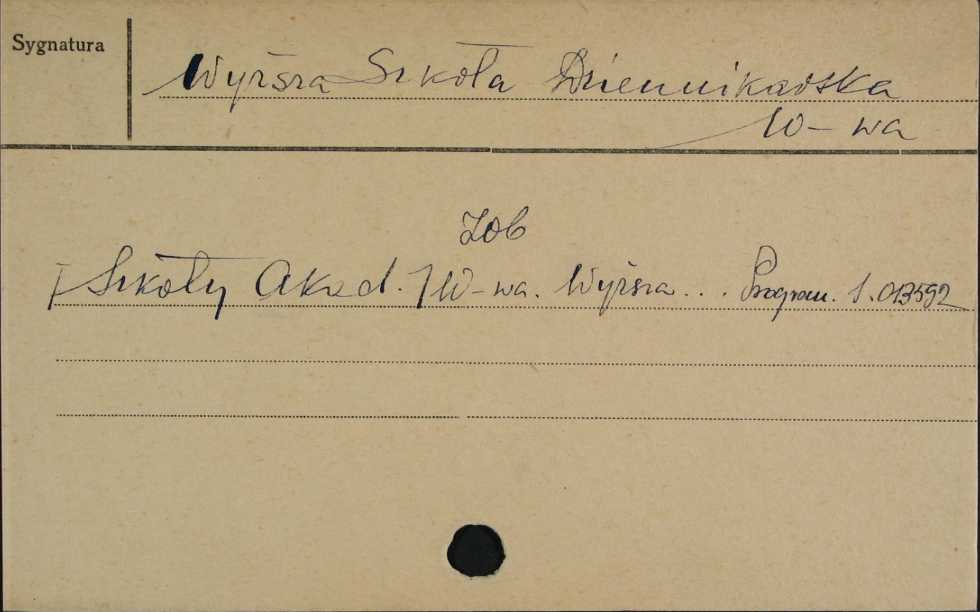 Sygnatura
Wyższa Szkoła Dziennikarska
W-wa
Zob
[Szkoły Akad.] W-wa. Wyższa... Program. S. 013592